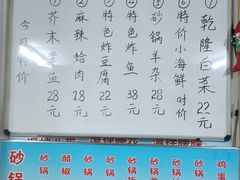 今日特价
① 芥末鱼 28元
② 麻辣蛤肉 18元
③ 特色炸豆腐 22元
④ 特色炸鱼 38元
⑤ 砂锅羊杂 28元
⑥ 特价小海鲜 时价
⑦ 乾隆白菜 22元
砂锅
醋椒
砂锅
砂锅
砂锅
鸡蛋